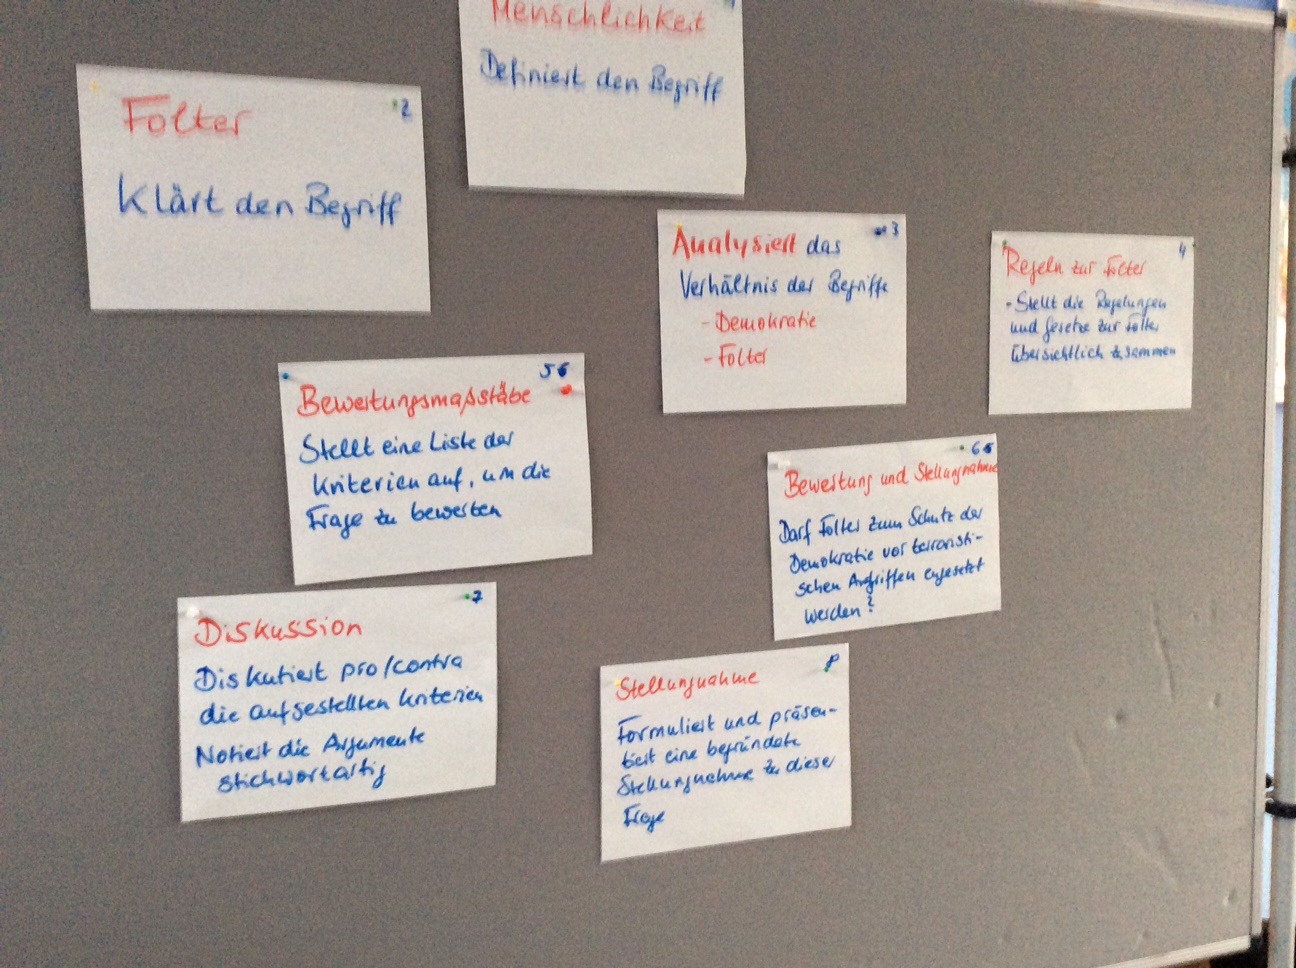 Menschlichkeit
Definiert den Begriff
2
Folter
Klärt den Begriff
3
Analysiert das
Verhältnis der Begriffe
- Demokratie
- Folter
4
Regeln zur Folter
- Stellt die Regelungen
und Gesetze zur Folter
übersichtlich zusammen
5
Bewertungsmaßstäbe
Stellt eine Liste der
Kriterien auf, um die
Frage zu bewerten
6
Bewertung und Stellungnahme
Darf Folter zum Schutz der
Demokratie vor terroristi-
schen Angriffen eingesetzt
werden?
7
Diskussion
Diskutiert pro/contra
die aufgestellten Kriterien
Notiert die Argumente
stichwortartig
8
Stellungnahme
Formuliert und präsen-
tiert eine begründete
Stellungnahme zu dieser
Frage